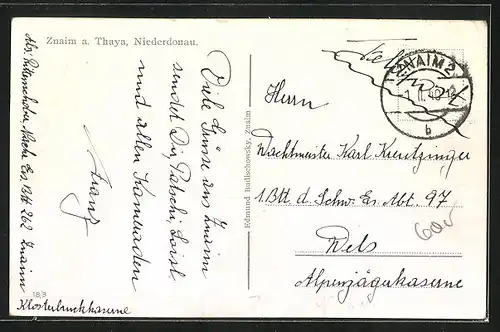 Znaim a. Thaya, Niederdonau.
Viele Grüsse aus Znaim
sendet Dir,
und allen Kameraden
Franz
Abs:
Ers. Btt 262 Znaim
Klosterbruckkaserne
18/3
Edmund Budischowsky, Znaim
Feldpost
ZNAIM 2
b
Herrn
Wachtmeister Karl Kreutzinger
1. Btt d. Schw. Ers. Abt. 97
Wels
Alpenjägerkaserne